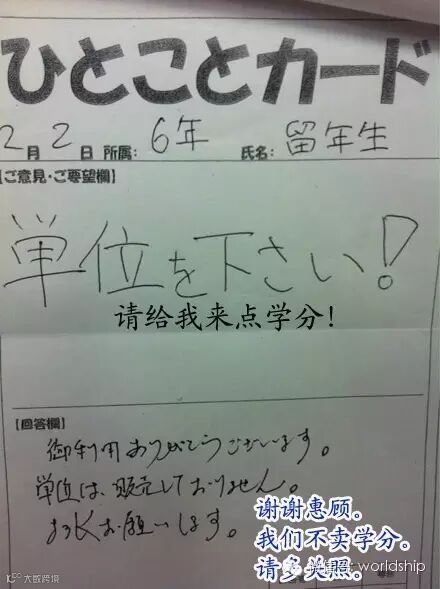 ひとことカード
2月2日 所属: 6年 氏名: 留年生
【ご意見・ご要望欄】
単位を下さい!
请给我来点学分!
【回答欄】
御利用ありがとうございます。
単位は、販売しておりません。
よろしくお願いします。
谢谢惠顾。
我们不卖学分。
请多关照。
大数跨境
t-worldship